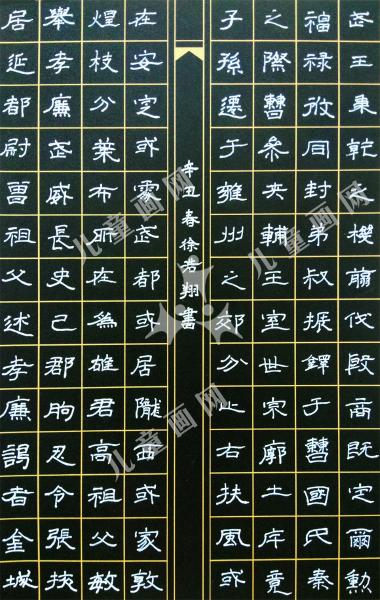 武王秉乾之機翦伐殷商既定爾勳
福祿攸同封弟叔振鐸于曹國氏秦
之際曹參夾輔王室世宗廓土斥竟
子孫遷于雍州之郊分止右扶風或
辛丑春徐翔書
在安定或處武都或居隴西或家敦
煌枝分葉布所在為雄君高祖父敏
舉孝廉武威長史巴郡朐忍令張掖
居延都尉曾祖父述孝廉謁者金城
儿童画网
儿童画网
儿童画网
儿童画网